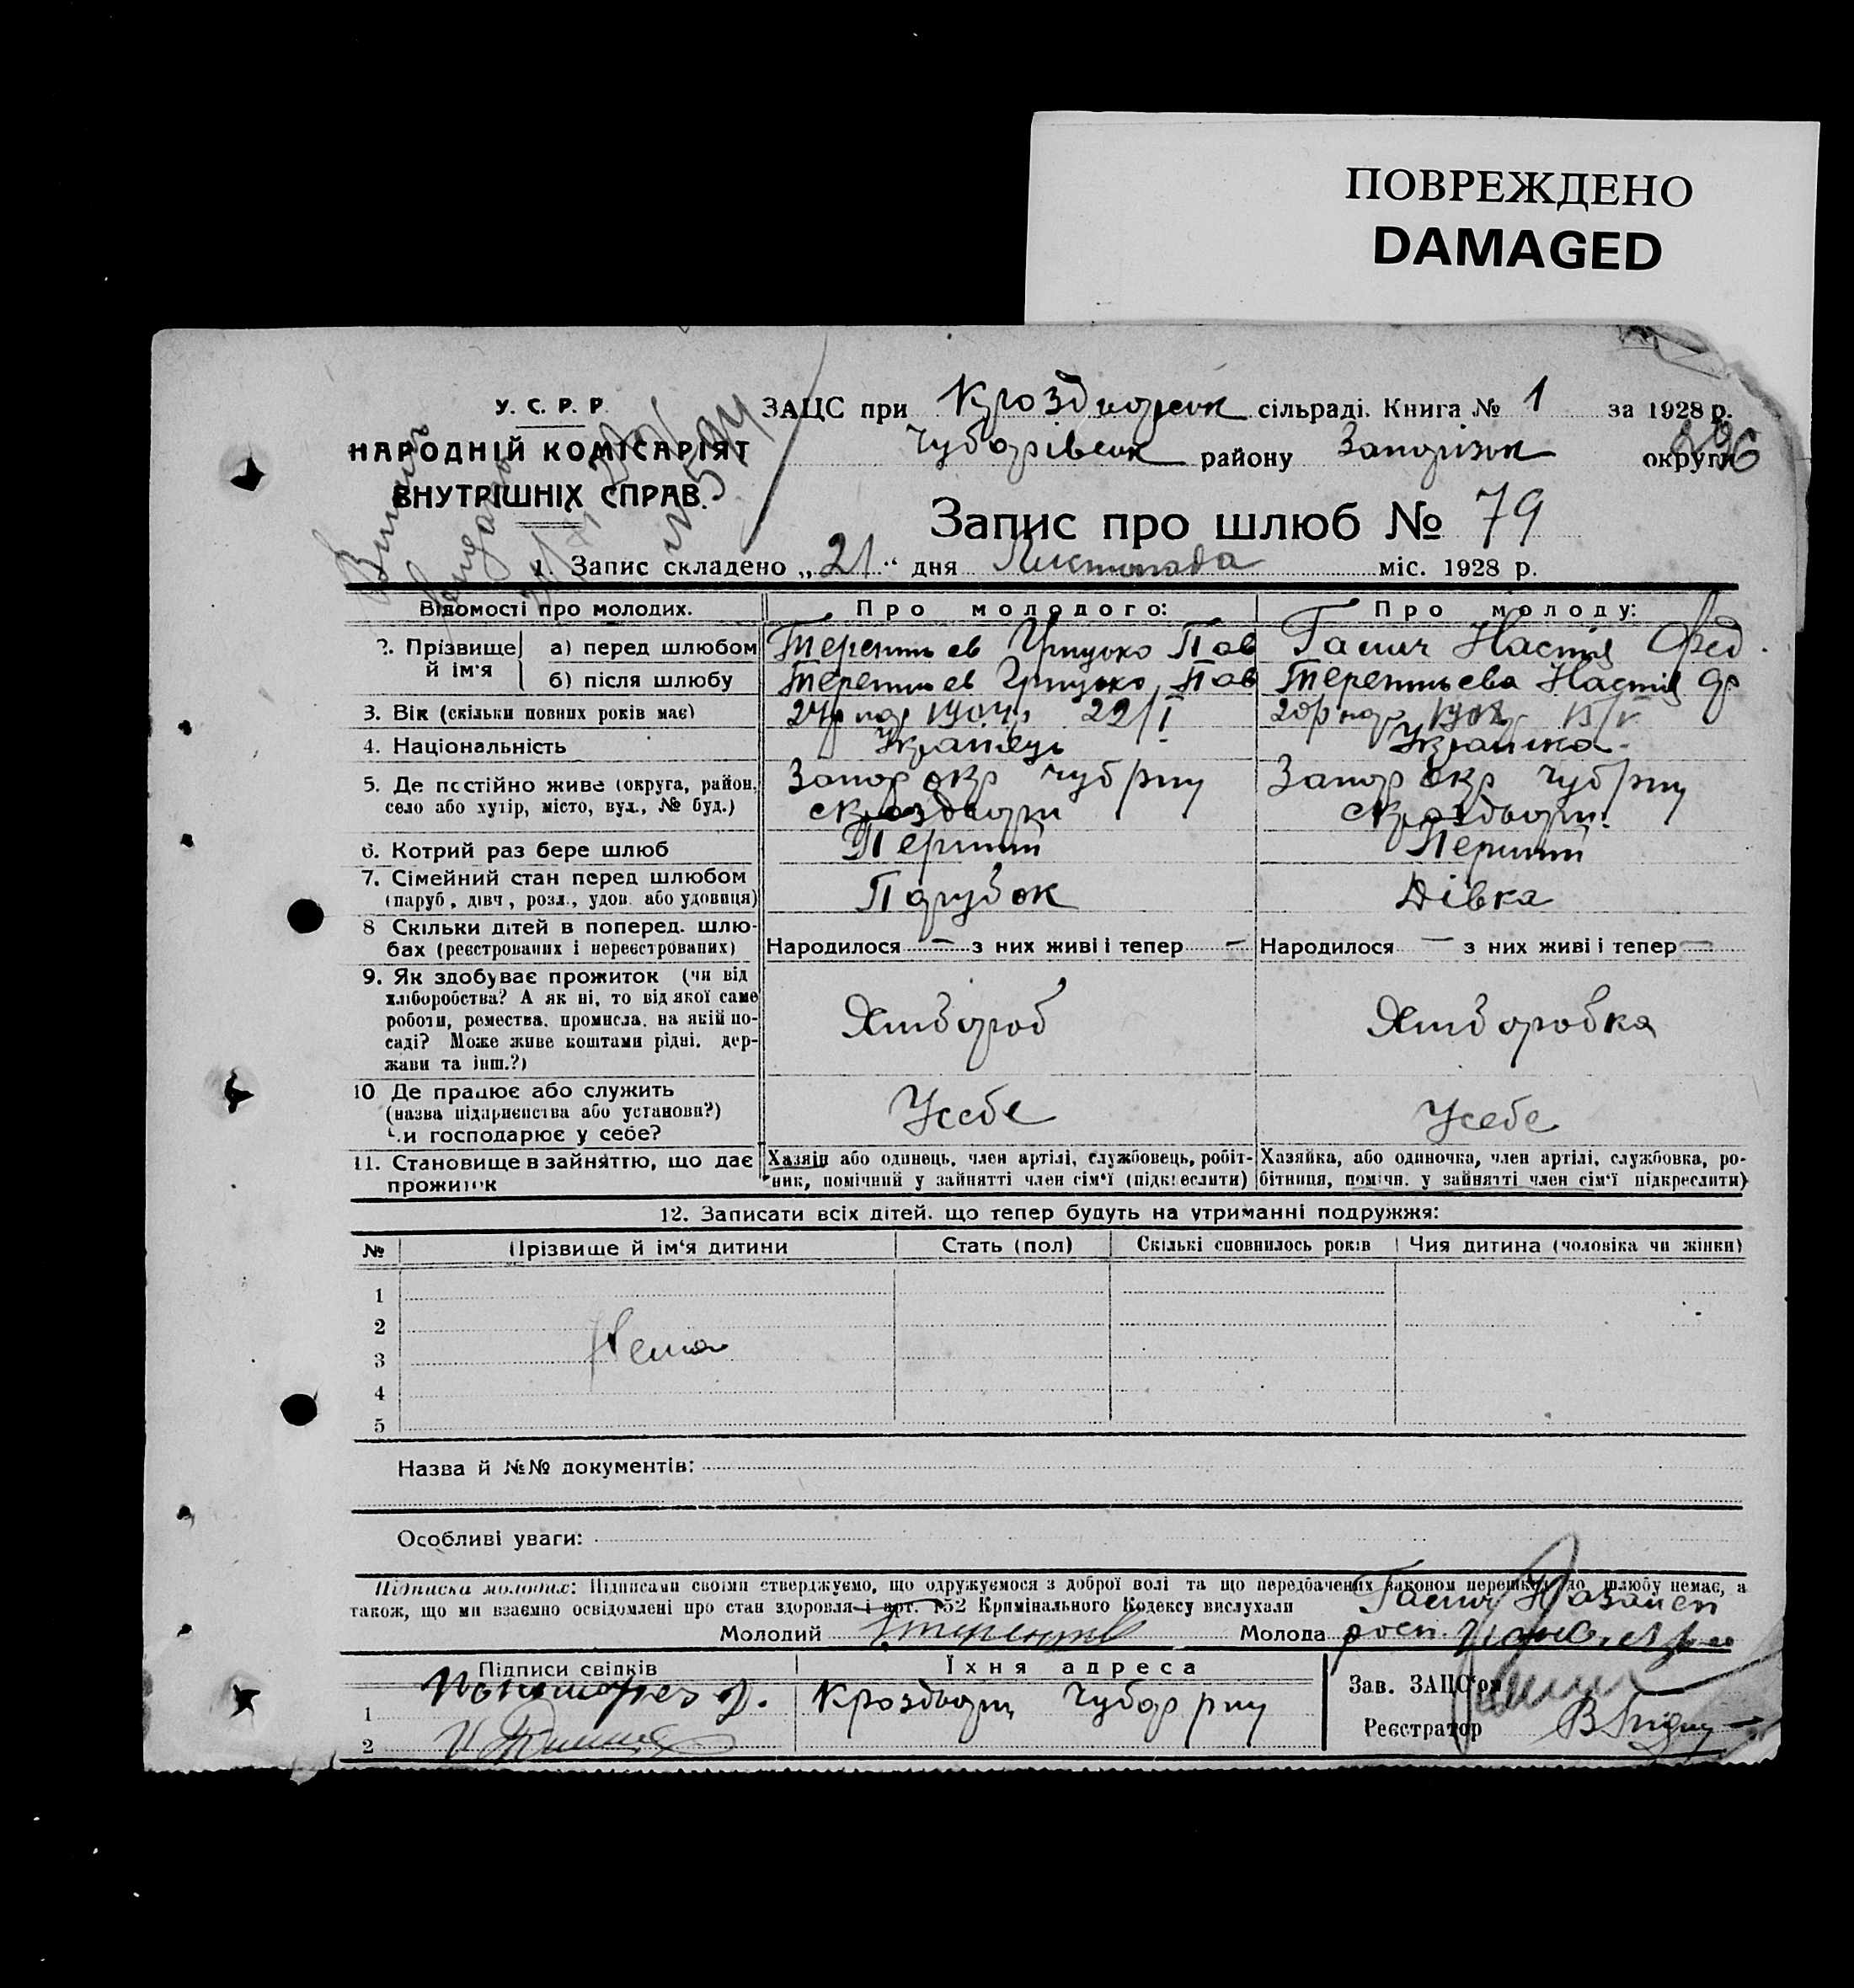 ПОВРЕЖДЕНО
DAMAGED
У. С. Р. Р.
НАРОДНІЙ КОМІСАРІЯТ
ВНУТРІШНІХ СПРАВ.
ЗАЦС при сільраді. Книга № 1 за 1928 р.
Чубарівськ району Запорізьк округи
Запис про шлюб № 79
1. Запис складено „21“ дня Листопада міс. 1928 р.
Відомості про молодих. Про молодого: Про молоду:
2. Прізвище й ім'я а) перед шлюбом Терентьев Грицько Пав Ганич Настія Фед.
б) після шлюбу Терентьев Грицько Пав Терентьева Настія
3. Вік (скільки повних років має) 24 р нар 1904 р 22/I 20 р нар 1908 р
4. Національність Українець Українка
5. Де постійно живе (округа, район, Запор окр Чуб/рну Запор окр Чуб/рну
село або хутір, місто, вул., № буд.)
6. Котрий раз бере шлюб Перший Перший
7. Сімейний стан перед шлюбом Парубок Дівка
(паруб., дівч., розл., удов. або удовиця)
8 Скільки дітей в поперед. шлю-
бах (реєстрованих і нереєстрованих) Народилося — з них живі і тепер — Народилося — з них живі і тепер —
9. Як здобуває прожиток (чи від
хліборобства? А як ні, то від якої саме
роботи, ремества, промисла, на якій по- Хлібороб Хліборобка
саді? Може живе коштами рідні, дер-
жави та інш.?)
10 Де працює або служить
(назва підприємства або установи?) Усебе Усебе
Чи господарює у себе?
11. Становище в зайняттю, що дає Хазяїн або одинець, член артілі, службовець, робіт- Хазяйка, або одиночка, член артілі, службовка, ро-
прожиток ник, помічний у зайнятті член сім'ї (підкреслити) бітниця, помічн. у зайнятті член сім'ї підкреслити)
12. Записати всіх дітей, що тепер будуть на утриманні подружжя:
№ Прізвище й ім'я дитини Стать (пол) Скількі сповнилось років Чия дитина (чоловіка чи жінки)
1
2
3 Нема
4
5
Назва й №№ документів:
Особливі уваги:
Підписка молодих: Підписами своїми стверджуємо, що одружуємося з доброї волі та що передбачених законом перешкод до шлюбу немає, а
також, що ми взаємно освідомлені про стан здоровля і арт. 152 Кримінального Кодексу вислухали
Молодий Молода
Підписи свідків Їхня адреса Зав. ЗАЦС'ом
1 Чубар рну
2 Реєстратор